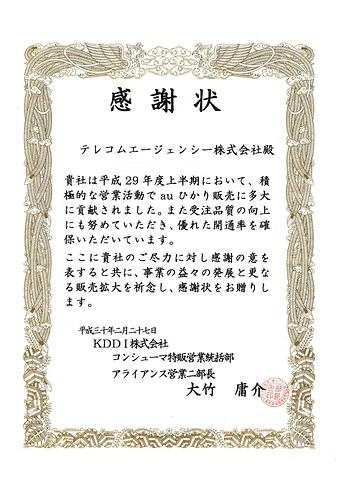 感謝状
テレコムエージェンシー株式会社殿
貴社は平成29年度上半期において、積
極的な営業活動でauひかり販売に多大
に貢献されました。また受注品質の向上
にも努めていただき、優れた開通率を確
保いただいています。
ここに貴社のご尽力に対し感謝の意を
表すると共に、事業の益々の発展と更な
る販売拡大を祈念し、感謝状をお贈りし
ます。
平成三十年二月二十七日
KDDI株式会社
コンシューマ特販営業統括部
アライアンス営業二部長
大竹 庸介